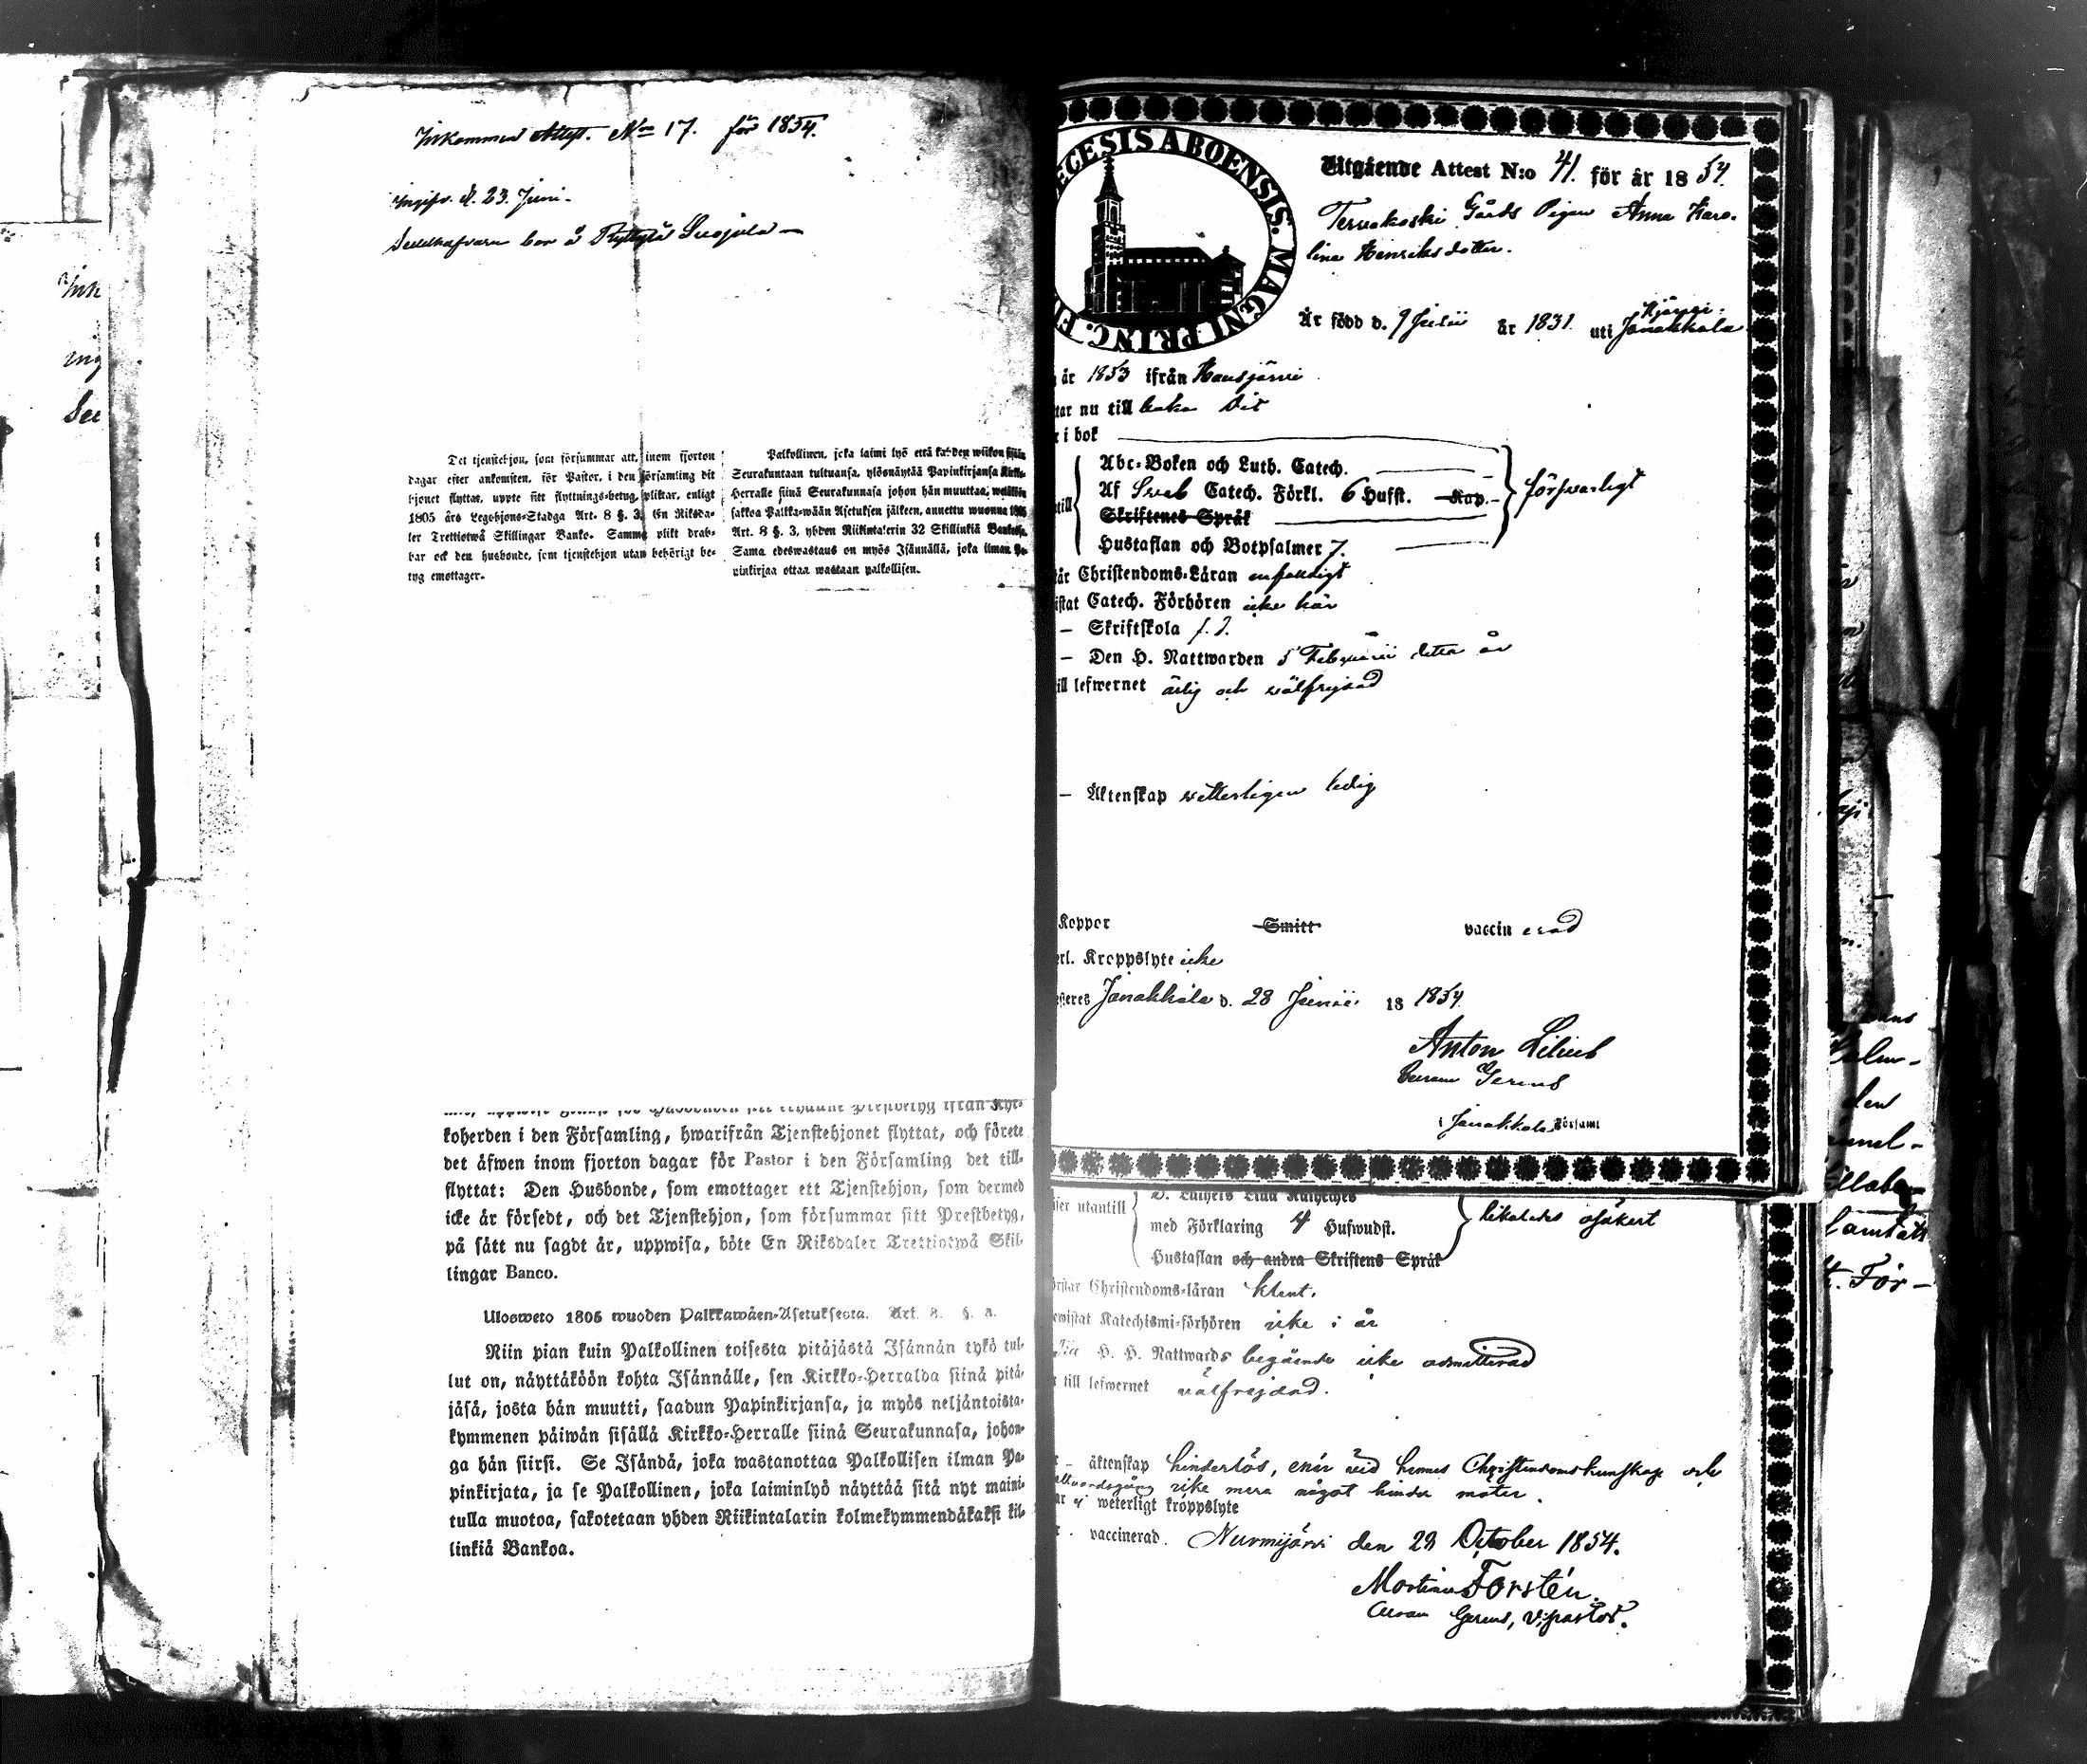 Inkommen Attest. No 17. för 1854.
Ingifv. d. 23. Juni.
Sedelhafvaren bor å Ryttylä Suojala
Det tjenstehjon, som försummar att, inom fjorton
dagar efter ankomsten, för Pastor, i den församling dit
hjonet flyttat, uppte sitt flyttnings-betyg, pliktar, enligt
1805 års Legohjons-Stadga Art. 8 §. 3. En Riksda-
ler Trettiotwå Skillingar Banko. Samma plikt drab-
bar ock den husbonde, som tjenstehjon utan behörigt be-
tyg emottager.
Palkollinen, joka laimi lyö että kahden wiikon sisän
Seurakuntaan tultuansa, ylösnäytää Papinkirjansa Kirko-
Herralle siinä Seurakunnasa johon hän muuttaa,
sakkoa Palkka-wään Asetuksen jälkeen, annettu wuonna 1805
Art. 8 §. 3, yhden Riikintalerin 32 Skillinkiä Bankosa.
Sama edeswastaus on myös Isännällä, joka ilman Pa-
pinkirjaa ottaa wastaan palkollisen.
koherden i den Församling, hwarifrån Tjenstehjonet flyttat, och förete
det äfwen inom fjorton dagar för Pastor i den Församling det till-
flyttat: Den Husbonde, som emottager ett Tjenstehjon, som dermed
icke är försedt, och det Tjenstehjon, som försummar sitt Prestbetyg,
på sätt nu sagdt är, uppwisa, böte En Riksdaler Trettiotwå Skil-
lingar Banco.
Ulosweto 1805 wuoden Palkkawäen-Asetuksesta. Art. 8. §. 3.
Niin pian kuin Palkollinen toisesta pitäjästä Isännän tykö tul-
lut on, näyttäköön kohta Isännälle, sen Kirkko-Herralda siinä pitä-
jäsä, josta hän muutti, saadun Papinkirjansa, ja myös neljäntoista-
kymmenen päiwän sisällä Kirkko-Herralle siinä Seurakunnasa, johon-
ga hän siirsi. Se Isändä, joka wastanottaa Palkollisen ilman Pa-
pinkirjata, ja se Palkollinen, joka laiminlyö näyttää sitä nyt maini-
tulla muotoa, sakotetaan yhden Riikintalarin kolmekymmendäkaksi kil-
linkiä Bankoa.
ECESIS ABOENSIS. MAGNI PRINC. FI
Utgående Attest N:o 41. för år 1854.
Tervakoski Gårds Pigan Anna Karo-
lina Henriksdotter.
Är född d. 9 Julii år 1831 uti Janakkala
år 1853 ifrån Hausjärvi
tar nu till baka dit
i bok
Abc-Boken och Luth. Catech.
Af Sveb Catech. Förkl. 6 Hufst. Kap. försvarligt
Skriftenes Språk
Hustaflan och Botpsalmer 7.
Christendoms-Läran enfaldigt
istat Catech. Förhören icke här
– Skriftskola f. d.
– Den H. Nattwarden 5 Februarii detta år
ill lefwernet ärlig och välfrejdad
– Äktenskap vetterligen ledig
Koppor Smitt vaccinerad
erl. Kroppslyte icke
steres Janakkala d. 28 Junii 18 1854
Anton Lilius
Curam Gerens
i Janakkala Församl
ser utantill
med Förklaring 4 Hufwudst. likaledes osäkert
Hustaflan och andra Skriftens Språk
rstår Christendoms-läran klent.
ewistat Katechismi-förhören icke i år
H. H. Nattwards begående icke admitterad
till lefwernet välfrejdad.
– äktenskap hinderlös, enär vid hennes Christendomskunskap och
nattvardsgång icke mera något hinder möter.
ar ej weterligt kroppslyte
vaccinerad. Nurmijärvi den 29 October 1854.
Martin Forstén.
Curam Gerens, V. pastor.